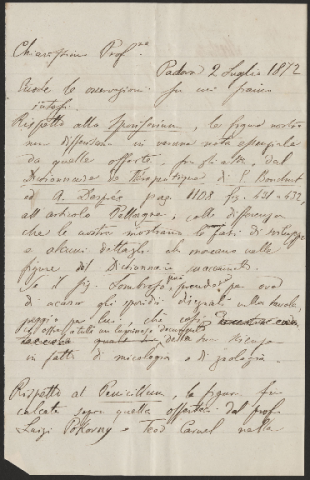 Chiariss.mo Prof.re
Padova 2 Luglio 1872
Eccole le osservazioni su cui siamo
intesi.
Rispetto allo Sporisorium, le figure nostre
non differiscono in veruna nota essenziale
da quelle offerte fra gli altri dal
Dictionnaire de Thérapeutique di E. Bouchut
ed A. Després pag. 1108 fig. 431 e 432,
all'articolo Pellagre, colla differenza
che le nostre mostrano le fasi di sviluppo
e alcuni dettagli che mancano nelle
figure del Dictionnaire
Se il Sig. Lombroso prende per ova
di acaro gli sporidi disegnati nella tavola,
peggio per lui, che così
che offre a tutti un luminoso documento
della sua
in fatti di micologia e di zoologia.
Rispetto al Penicillium, la figura fu
calcata sopra quella offertaci dal prof.
Luigi Pokorny e Teod Caruel nella